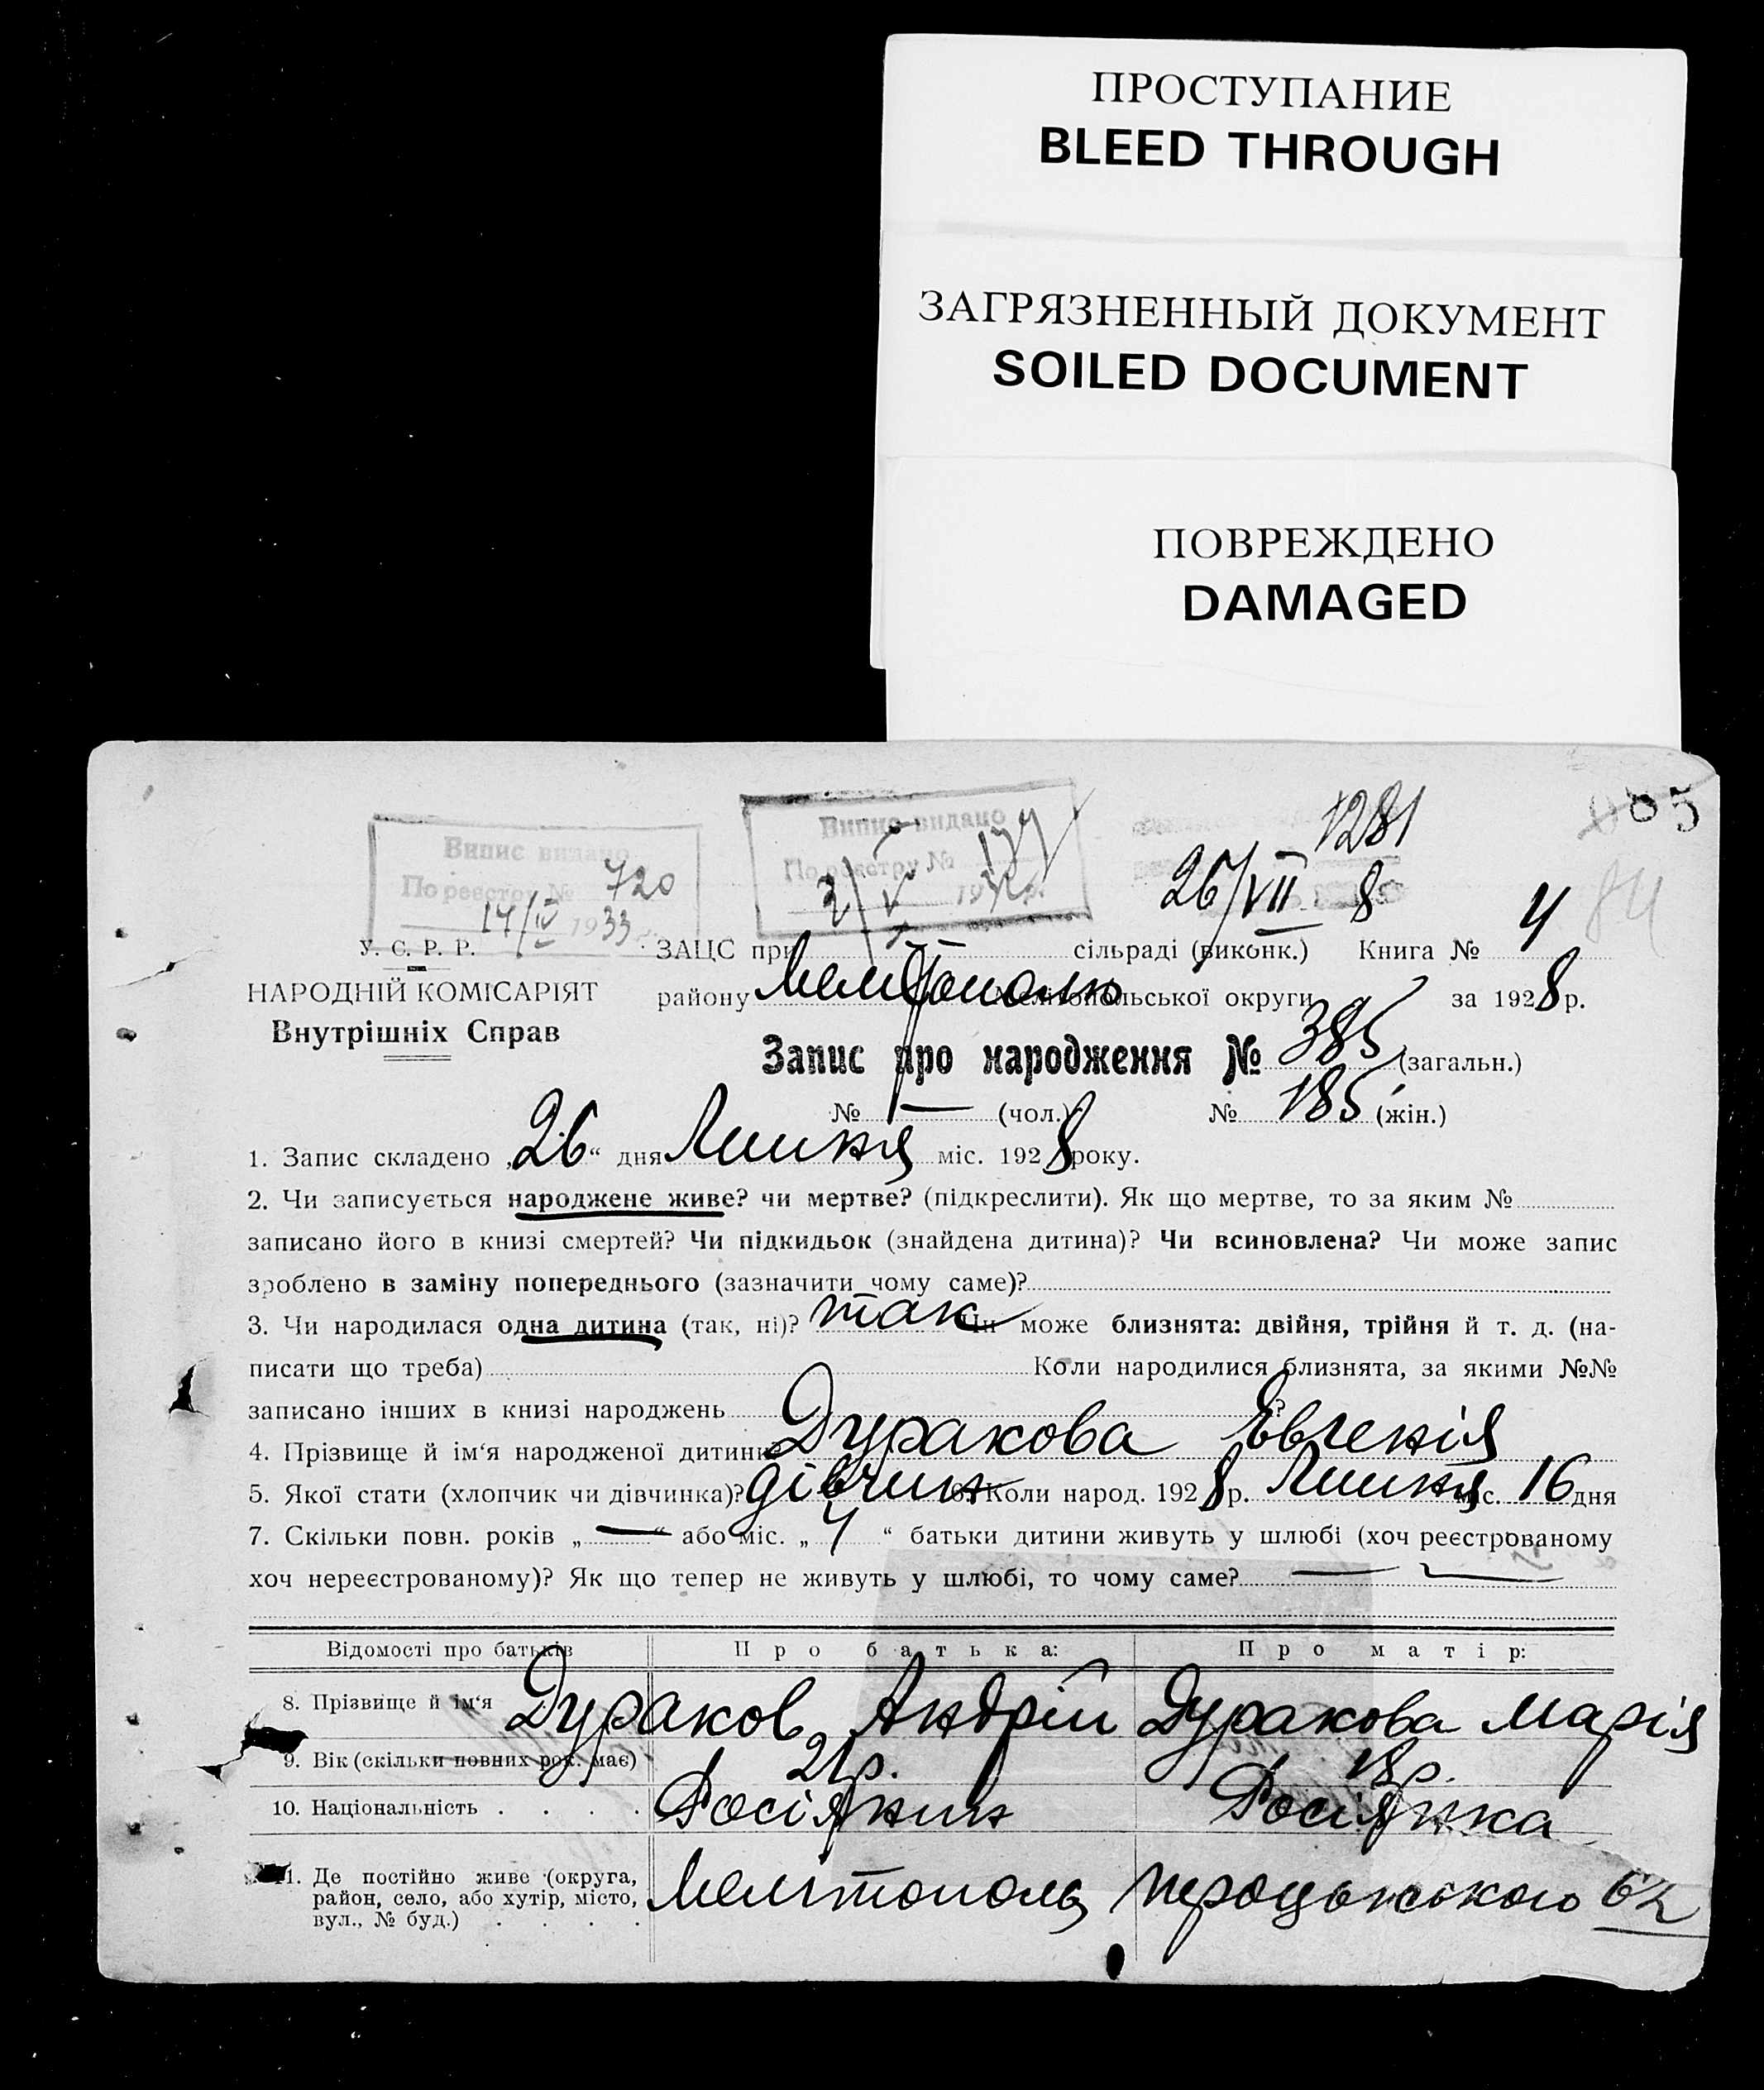 ПРОСТУПАНИЕ
BLEED THROUGH
ЗАГРЯЗНЕННЫЙ ДОКУМЕНТ
SOILED DOCUMENT
ПОВРЕЖДЕНО
DAMAGED
1281
85
84
Випис видано
По реєстру № 720
14/IV 1933
Випис видано
По реєстру №
26/VII 8
У. С. Р. Р.
НАРОДНІЙ КОМІСАРІЯТ
Внутрішніх Справ
ЗАЦС при сільраді (виконк.) Книга № 4
району Мелітополь Мелітопольської округи за 1928 р.
Запис про народження № 385 (загальн.)
№ — (чол.) № 185 (жін.)
1. Запис складено „26“ дня Липня міс. 1928 року.
2. Чи записується народжене живе? чи мертве? (підкреслити). Як що мертве, то за яким №
записано його в книзі смертей? Чи підкидьок (знайдена дитина)? Чи всиновлена? Чи може запис
зроблено в заміну попереднього (зазначити чому саме)?
3. Чи народилася одна дитина (так, ні)? так Чи може близнята: двійня, трійня й т. д. (на-
писати що треба) Коли народилися близнята, за якими №№
записано інших в книзі народжень ?
4. Прізвище й ім‘я народженої дитини Дуракова Євгенія
5. Якої стати (хлопчик чи дівчинка)? дівчин 6. Коли народ. 1928 р. Липня міс. 16 дня
7. Скільки повн. років „—“ або міс. „4“ батьки дитини живуть у шлюбі (хоч реєстрованому
хоч нереєстрованому)? Як що тепер не живуть у шлюбі, то чому саме? —
Відомості про батьків Про батька: Про матір:
8. Прізвище й ім‘я Дураков Андрій Дуракова Марія
9. Вік (скільки повних рок. має) 21 р. 18 р.
10. Національність . . . . Росіянин Росіянка
11. Де постійно живе (округа,
район, село, або хутір, місто,
вул., № буд.) . . . . Мелітополь 62